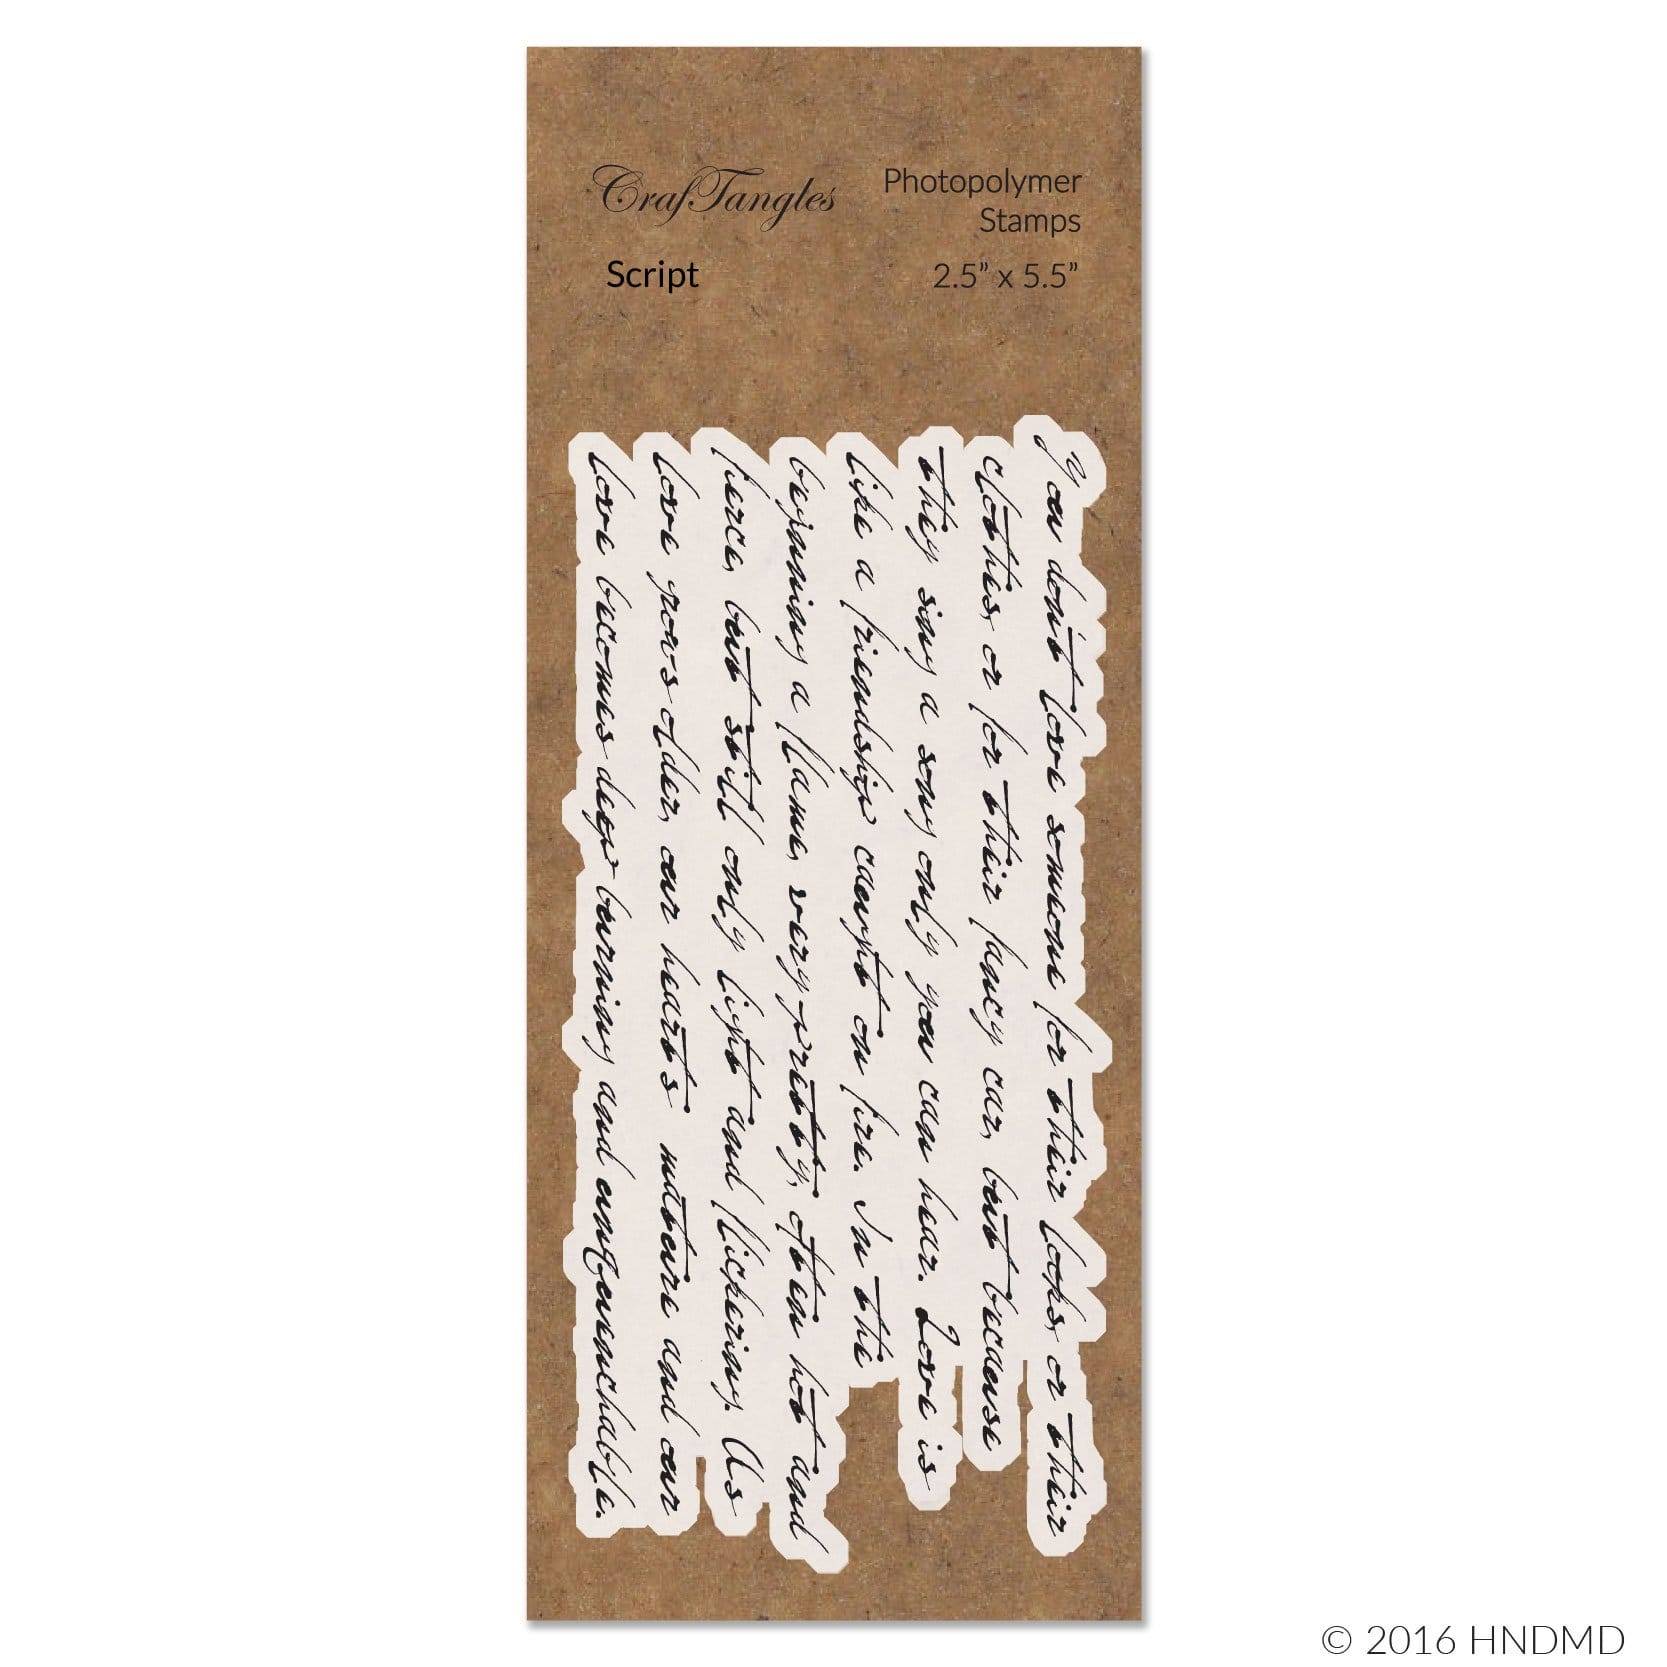 CrafTangles
Photopolymer
Stamps
Script
2.5” x 5.5”
You don't love someone for their looks, or their
clothes, or for their fancy car, but because
they sing a song only you can hear. Love is
like a friendship caught on fire. In the
beginning a flame, very pretty, often hot and
fierce, but still only light and flickering. As
love grows older, our hearts mature and our
love becomes deep burning and unquenchable.
© 2016 HNDMD